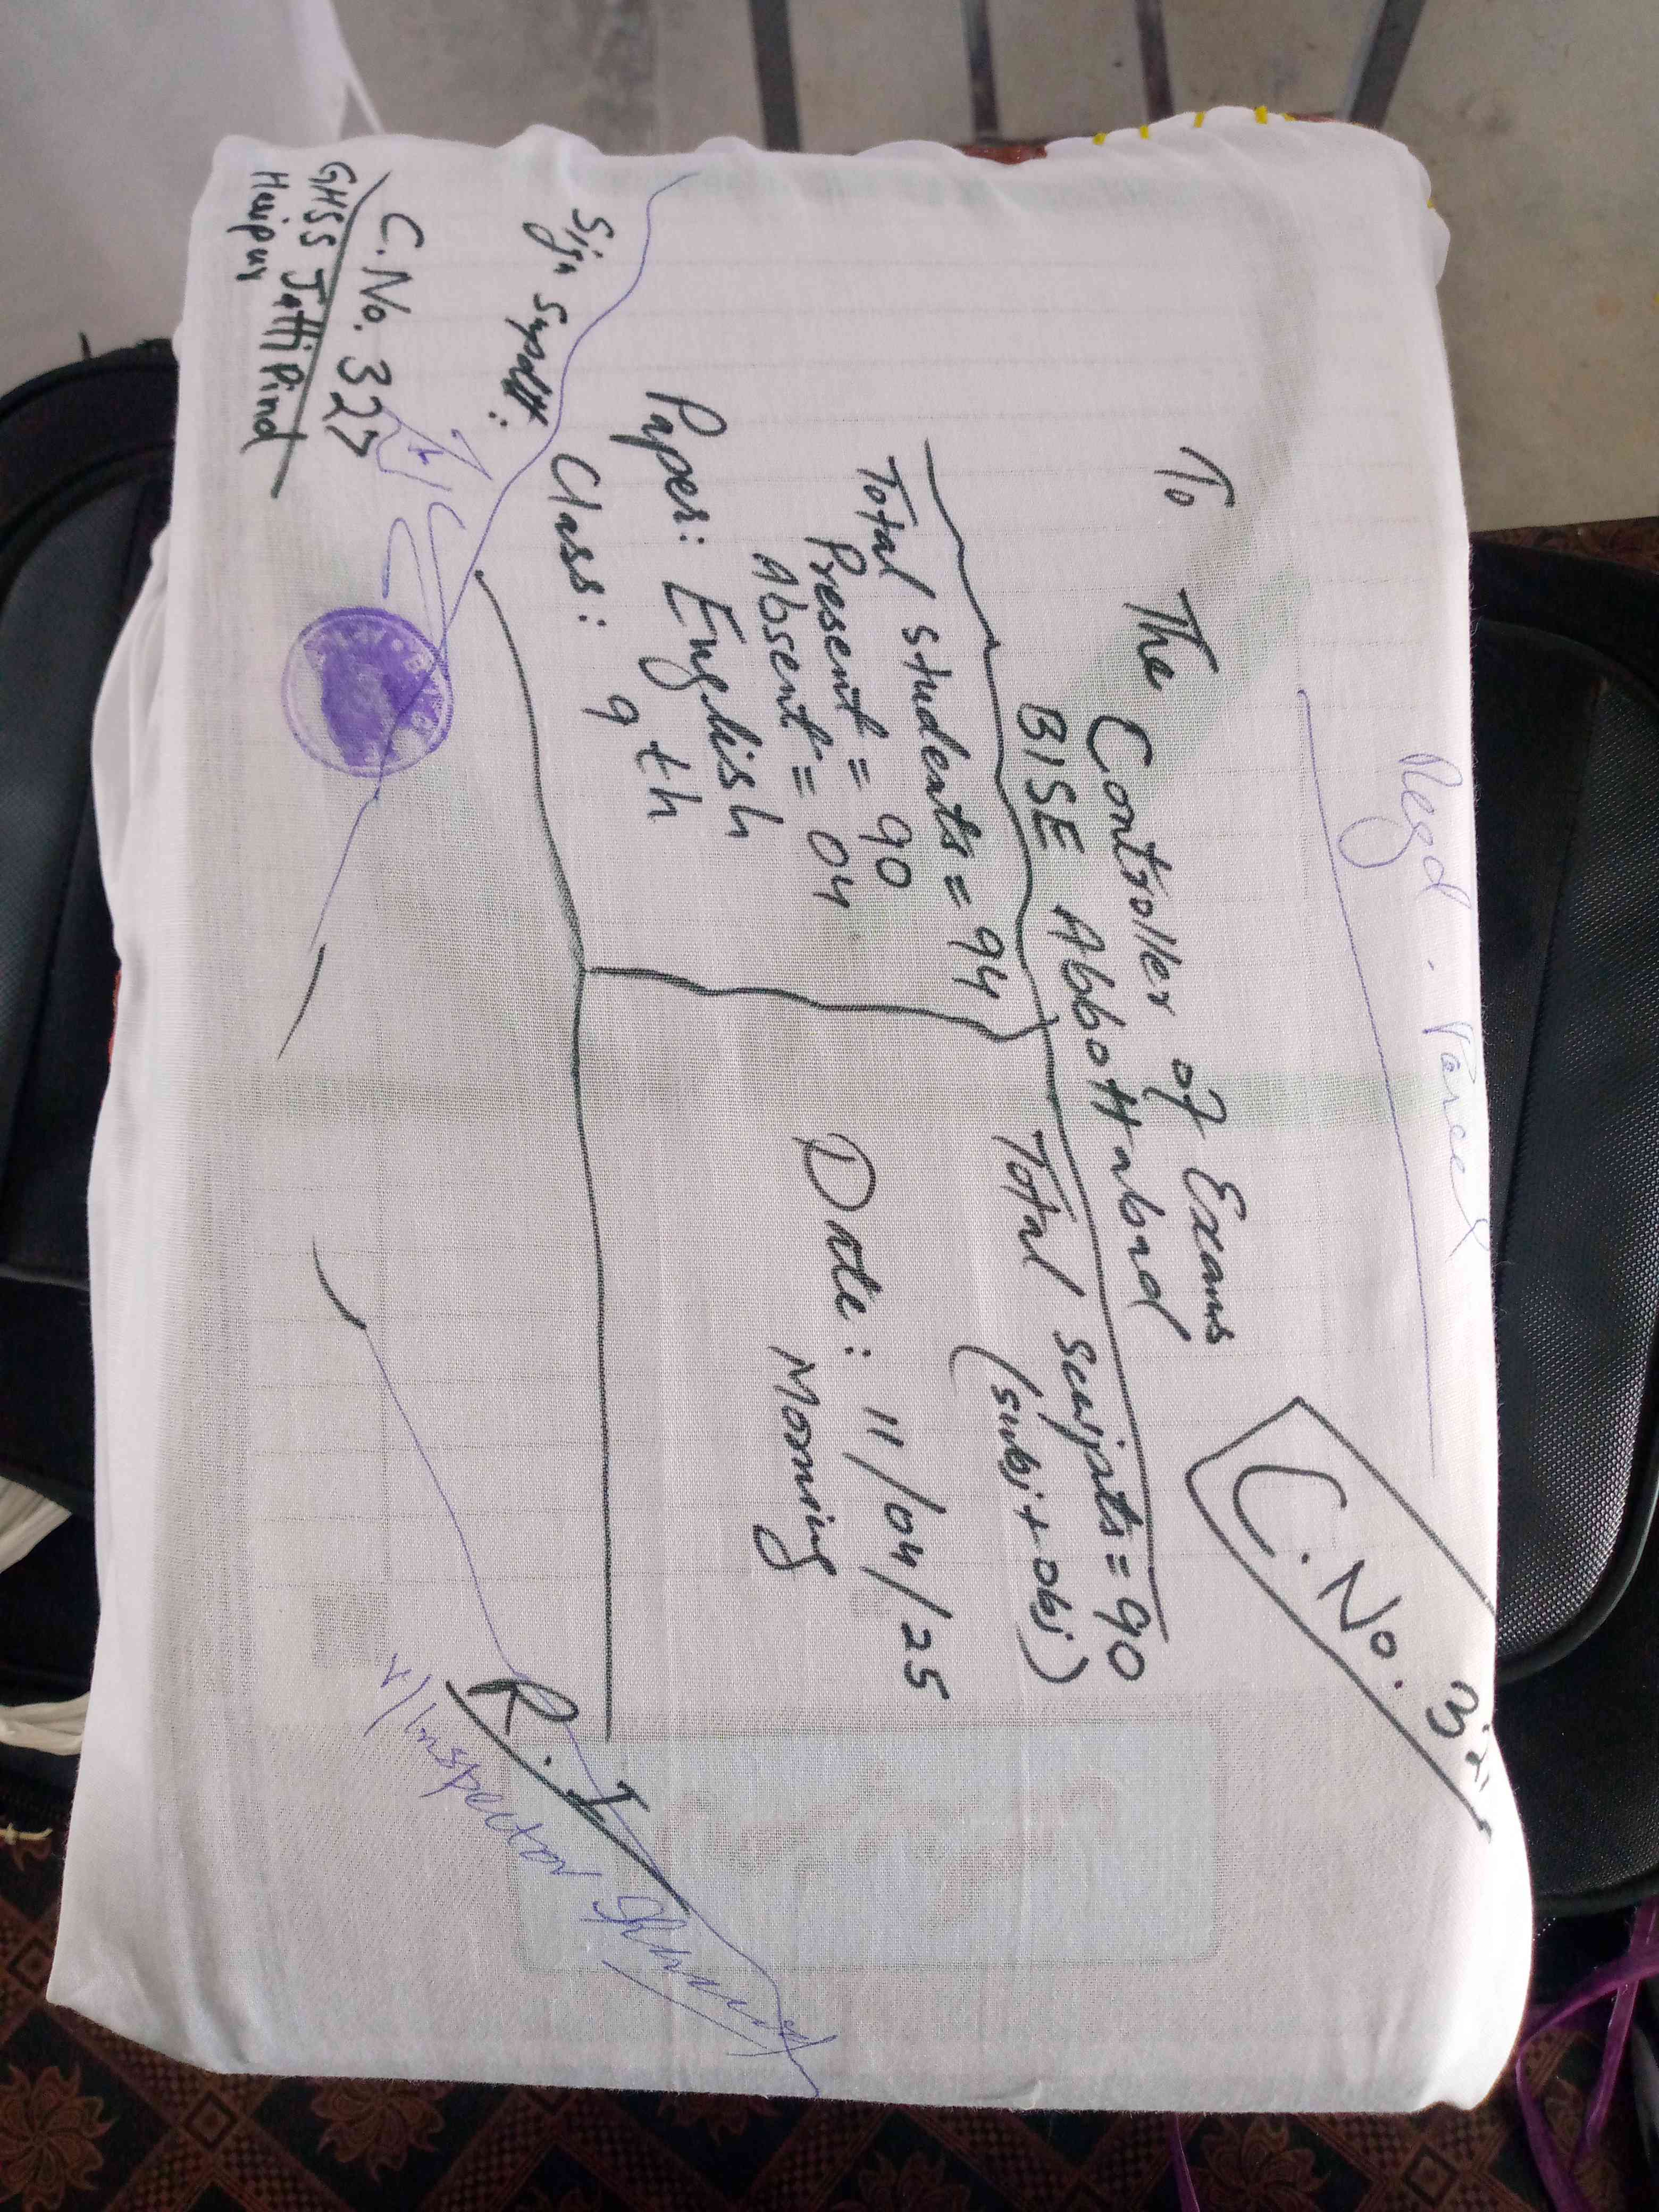 Regd. Parcel
C.No. 327
To The Controller of Exams
BISE Abbottabad
Total students = 94
Present = 90
Absent = 04
Paper: English
Class: 9th
Total scripts = 90
(subj + obj)
Date: 11/04/25
Morning
Sign Supdtt:
C.No. 327
GHSS Jatti Pind
Haripur
R.I